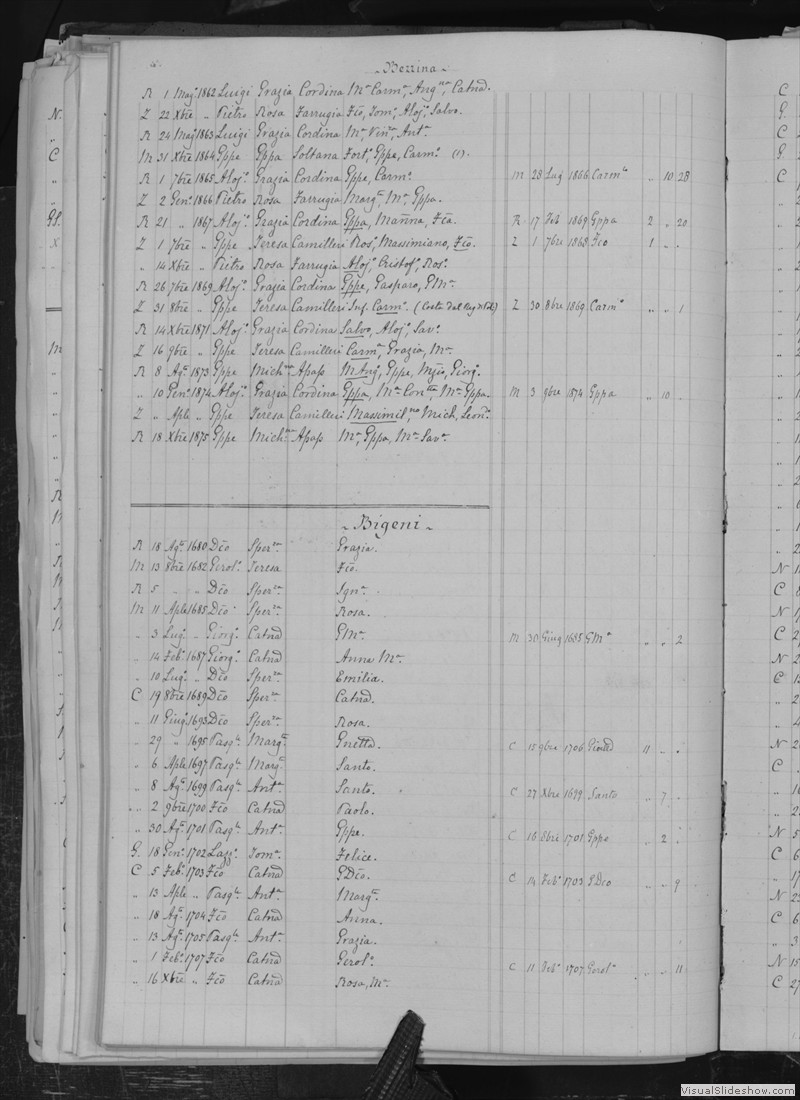 Berrina
R 1 Magº 1862 Luigi Grazia Cordina Mª Carmª, Angᵐᵃ, Catnā.
Z 22 Xbre „ Pietro Rosa Farrugia Fċo, Tomº, Alojº, Salvo.
R 24 Magº 1863 Luigi Grazia Cordina Mª, Vinª, Antª.
M 31 Xbre 1864 Gppe Gppa Soltana Fortº, Gppe, Carmº (1).
R 1 7bre 1865 Alojº Grazia Cordina Gppe, Carmº. M 28 Lug 1866 Carmⁿᵒ „ 10 28
Z 2 Genº 1866 Pietro Rosa Farrugia Margª, Mª Gppa.
R 21 „ 1867 Alojº Grazia Cordina Gppa, Marīna, Fċa. R 17 Feb 1869 Gppa 2 „ 20
Z 1 7bre „ Gppe Teresa Camilleri Rosº, Massimiano, Fċo. Z 1 7bre 1868 Fċo 1 „ .
„ 14 Xbre „ Pietro Rosa Farrugia Alojº, Cristofº, Rosº.
R 26 7bre 1869 Alojº Grazia Cordina Gppe, Gasparo, GMª.
Z 31 8bre „ Gppe Teresa Camilleri Inf. Carmº. Z 30 8bre 1869 Carmº „ „ 1
R 14 Xbre 1871 Alojº Grazia Cordina Salvo, Alojº, Savº.
Z 16 9bre „ Gppe Teresa Camilleri Carmª, Grazia, Mª.
R 8 Agº 1873 Gppe Michⁿᵃ Apap MAngº, Gppe, Giorgº.
„ 10 Genº 1874 Alojº Grazia Cordina Gppa, Mª Conᶻᵃ, Mª Gppa. M 3 9bre 1874 Gppa „ 10 .
Z „ Aple „ Gppe Teresa Camilleri Massimilⁿᵒ, Mich, Leonº.
R 18 Xbre 1875 Gppe Michⁿᵃ Apap Mª, Gppa, Mª Savª.
Bigeni
R 18 Agº 1680 Dċo Sperᶻᵃ Grazia.
M 13 8bre 1682 Gerolº Teresa Fċo.
R 5 „ „ Dċo Sperᶻᵃ Ignº.
M 11 Aple 1685 Dċo Sperᶻᵃ Rosa.
„ 3 Lugº „ Giorgº Catnā GMª. M 30 Giug 1685 GMª „ „ 2
„ 14 Febº 1687 Giorgº Catnā Anna Mª.
„ 10 Lugº „ Dċo Sperᶻᵃ Emilia.
C 19 8bre 1689 Dċo Sperᶻᵃ Catnā.
„ 11 Giugº 1693 Dċo Sperᶻᵃ Rosa.
„ 29 „ 1695 Pasqˡᵉ Margª. C 15 9bre 1706 11 „ .
„ 6 Aple 1697 Pasqˡᵉ Margª. Santo.
„ 8 Agº 1699 Pasqˡᵉ Antª. Santo. C 27 Xbre 1699 Santo „ 7 .
„ 2 9bre 1700 Fċo Catnā Paolo.
„ 30 Agº 1701 Pasqˡᵉ Antª. Gppe. C 16 8bre 1701 Gppe „ 2 .
G. 18 Genº 1702 Tomª. Felice.
C 5 Febº 1703 Fċo Catnā GDċo. C 14 Febº 1703 GDco „ „ 9
„ 13 Aple „ Pasqˡᵉ Antª. Margª.
„ 18 Agº 1704 Fċo Catnā Anna.
„ 13 Agº 1705 Pasqˡᵉ Antª. Grazia.
„ 1 Febº 1707 Fċo Catnā Gerolº. C 11 Febº 1707 Gerolº „ „ 11
„ 16 Xbre „ Fċo Catnā Rosa, Mª.
VisualSlideshow.com